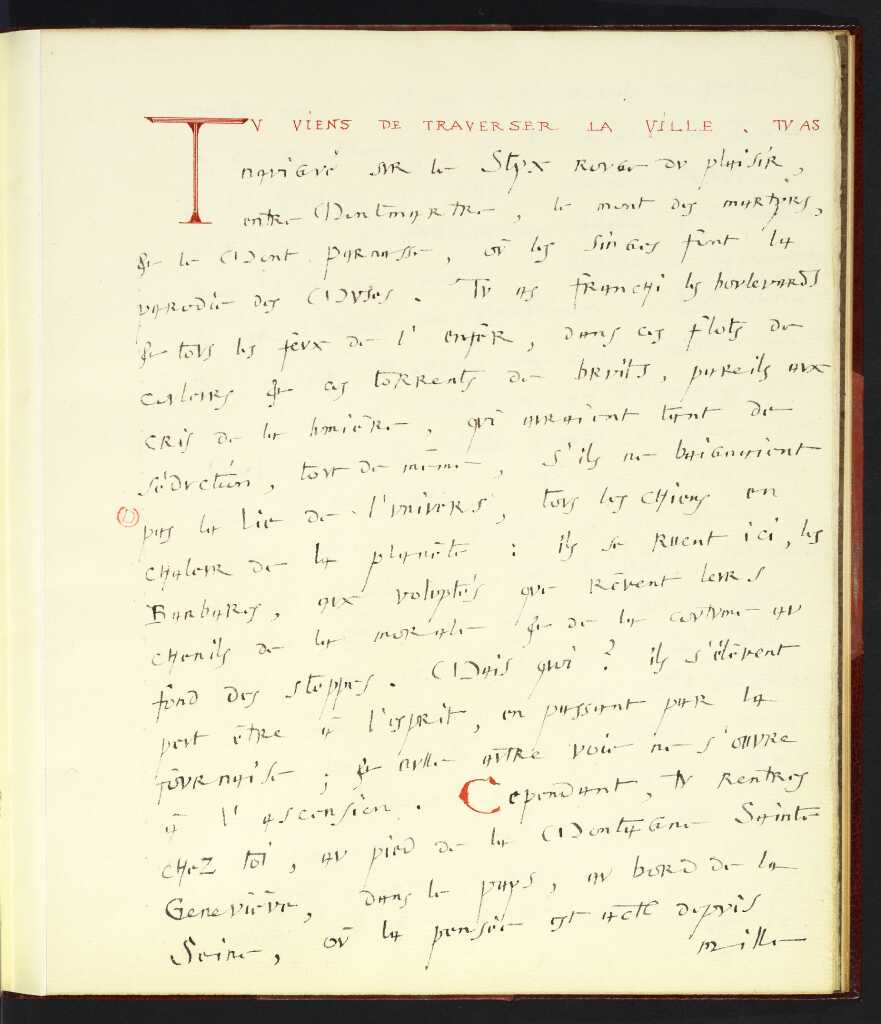 TV VIENS DE TRAVERSER LA VILLE . TV AS
navigué svr le Styx rovge dv plaisir,
entre Montmartre, le mont des martyrs,
& le Mont Parnasse, où les singes font la
parodie des Mvses. Tv as franchi les bovlevards
& tovs les fevx de l'enfer, dans ces flots de
covlevrs & ces torrents de brvits, pareils avx
cris de la lvmière, qvi avraient tant de
sédvction, tovt de même, s'ils ne baignaient
pas la lie de l'vnivers, tovs les chiens en
chalevr de la planète : ils se rvent ici, les
Barbares, avx volvptés qve rêvent levrs
chenils de la morale & de la covtvme av
fond des steppes. Mais qvoi ? ils s'élèvent
pevt être à l'esprit, en passant par la
fovrnaise ; & nvlle avtre voie ne s'ovvre
à l'ascension. Cependant, tv rentres
chez toi, av pied de la Montagne Sainte
Geneviève, dans le pays, av bord de la
Seine, où la pensée est acte depvis
mille